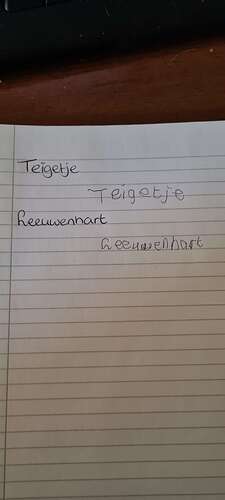 Teigetje
Teigetje
Leeuwenhart
Leeuwenhart